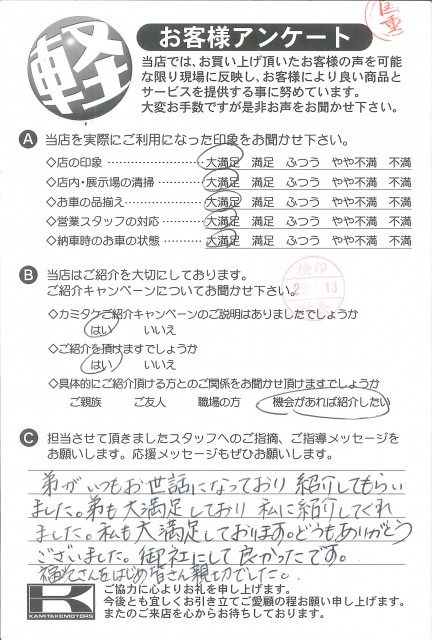 軽
お客様アンケート
当店では、お買い上げ頂いたお客様の声を可能
な限り現場に反映し、お客様により良い商品と
サービスを提供する事に努めています。
大変お手数ですが是非お声をお聞かせ下さい。
A 当店を実際にご利用になった印象をお聞かせ下さい。
◇店の印象 大満足 満足 ふつう やや不満 不満
◇店内・展示場の清掃 大満足 満足 ふつう やや不満 不満
◇お車の品揃え 大満足 満足 ふつう やや不満 不満
◇営業スタッフの対応 大満足 満足 ふつう やや不満 不満
◇納車時のお車の状態 大満足 満足 ふつう やや不満 不満
B 当店はご紹介を大切にしております。
ご紹介キャンペーンについてお聞かせ下さい。
検印
◇カミタケご紹介キャンペーンのご説明はありましたでしょうか
はい いいえ
◇ご紹介を頂けますでしょうか
はい いいえ
◇具体的にご紹介頂ける方とのご関係をお聞かせ頂けますでしょうか
ご親族 ご友人 職場の方 機会があれば紹介したい
C 担当させて頂きましたスタッフへのご指摘、ご指導メッセージを
お願いします。応援メッセージもぜひお願いします。
弟がいつもお世話になっており 紹介してもらい
ました。弟も大満足しており 私に紹介してくれ
ました。私も大満足しております。どうもありがとう
ございました。御社にして良かったです。
さんをはじめ皆さん親切でした。
K
KAMITAKEMOTORS
ご協力に心よりお礼を申し上げます。
今後とも宜しくお引き立てご愛顧の程お願い申し上げます。
またのご来店を心からお待ちしております。